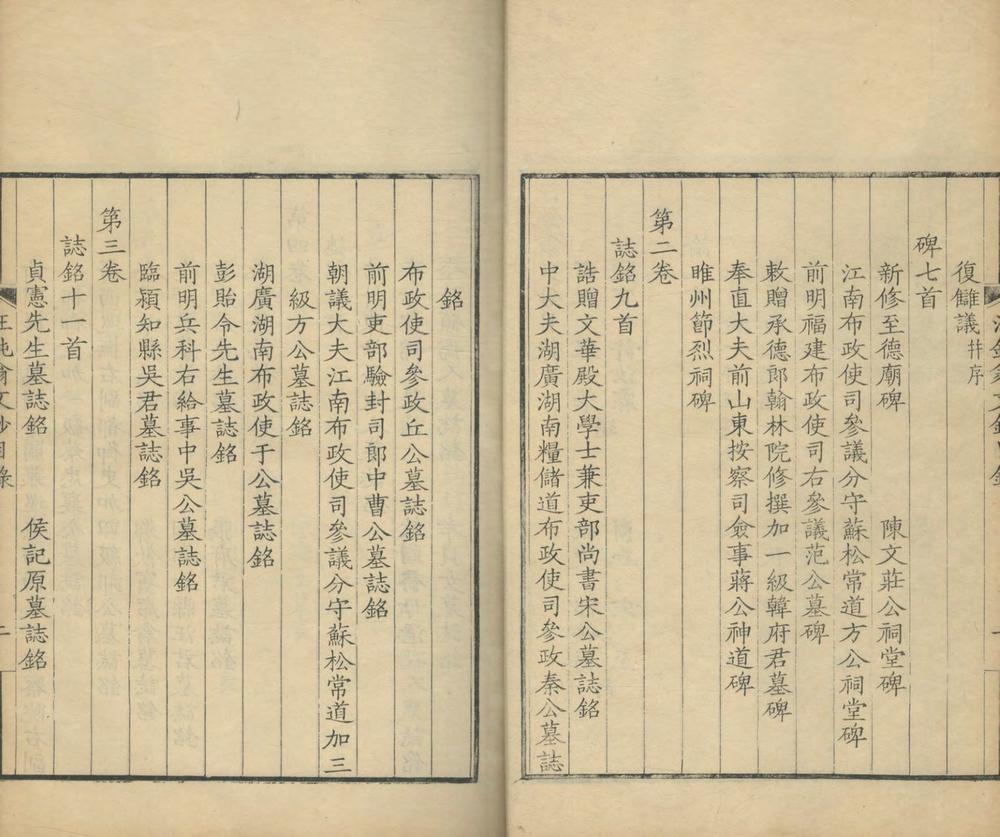 復讎議幷序
碑七首
新修至德廟碑 陳文莊公祠堂碑
江南布政使司參議分守蘇松常道方公祠堂碑
前明福建布政使司右參議范公墓碑
敕贈承德郎翰林院修撰加一級韓府君墓碑
奉直大夫前山東按察司僉事蔣公神道碑
睢州節烈祠碑
第二卷
誌銘九首
誥贈文華殿大學士兼吏部尚書宋公墓誌銘
中大夫湖廣湖南糧儲道布政使司參政秦公墓誌
銘
布政使司參政丘公墓誌銘
前明吏部驗封司郎中曹公墓誌銘
朝議大夫江南布政使司參議分守蘇松常道加三
級方公墓誌銘
湖廣湖南布政使于公墓誌銘
彭貽令先生墓誌銘
前明兵科右給事中吳公墓誌銘
臨潁知縣吳君墓誌銘
第三卷
誌銘十一首
貞憲先生墓誌銘 侯記原墓誌銘